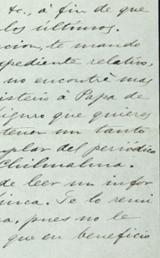 &c., á fin de que
los últimos.
cion, te mando
pediente relativo,
no encontré mas
isterio á Papa de
iguro que quieres
tener un tanto
plar del periódico
Chilmalma.
de leer un infor
única. Te lo remi
a, pues no le
que en beneficio